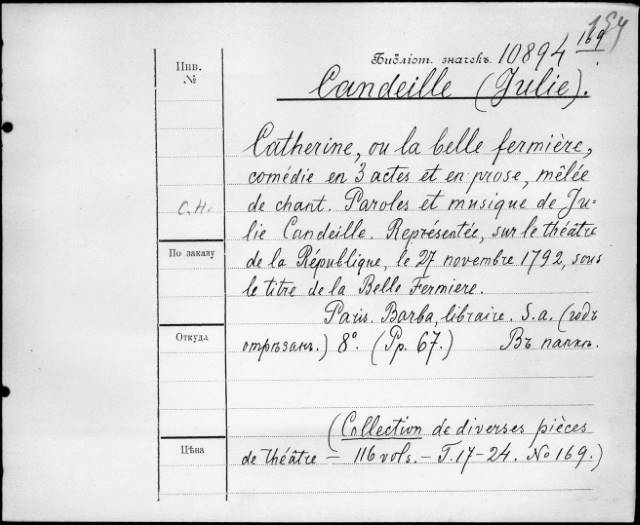 169
Инв.
№
Библіот. значекъ. 10894
Candeille (Julie).
Catherine, ou la belle fermière,
comédie en 3 actes et en prose, mêlée
de chant. Paroles et musique de Ju-
lie Candeille. Représentée, sur le théâtre
de la République, le 27 novembre 1792, sous
le titre de la Belle Fermiere.
Paris. Barba, libraire. S.a. (годъ
отрѣзанъ.) 8°. (Pp. 67.) Въ папкѣ.
С.Н.
По заказу
Откуда
Цѣна
(Collection de diverses pièces
de théâtre – 116 vols. – T. 17–24. No 169.)